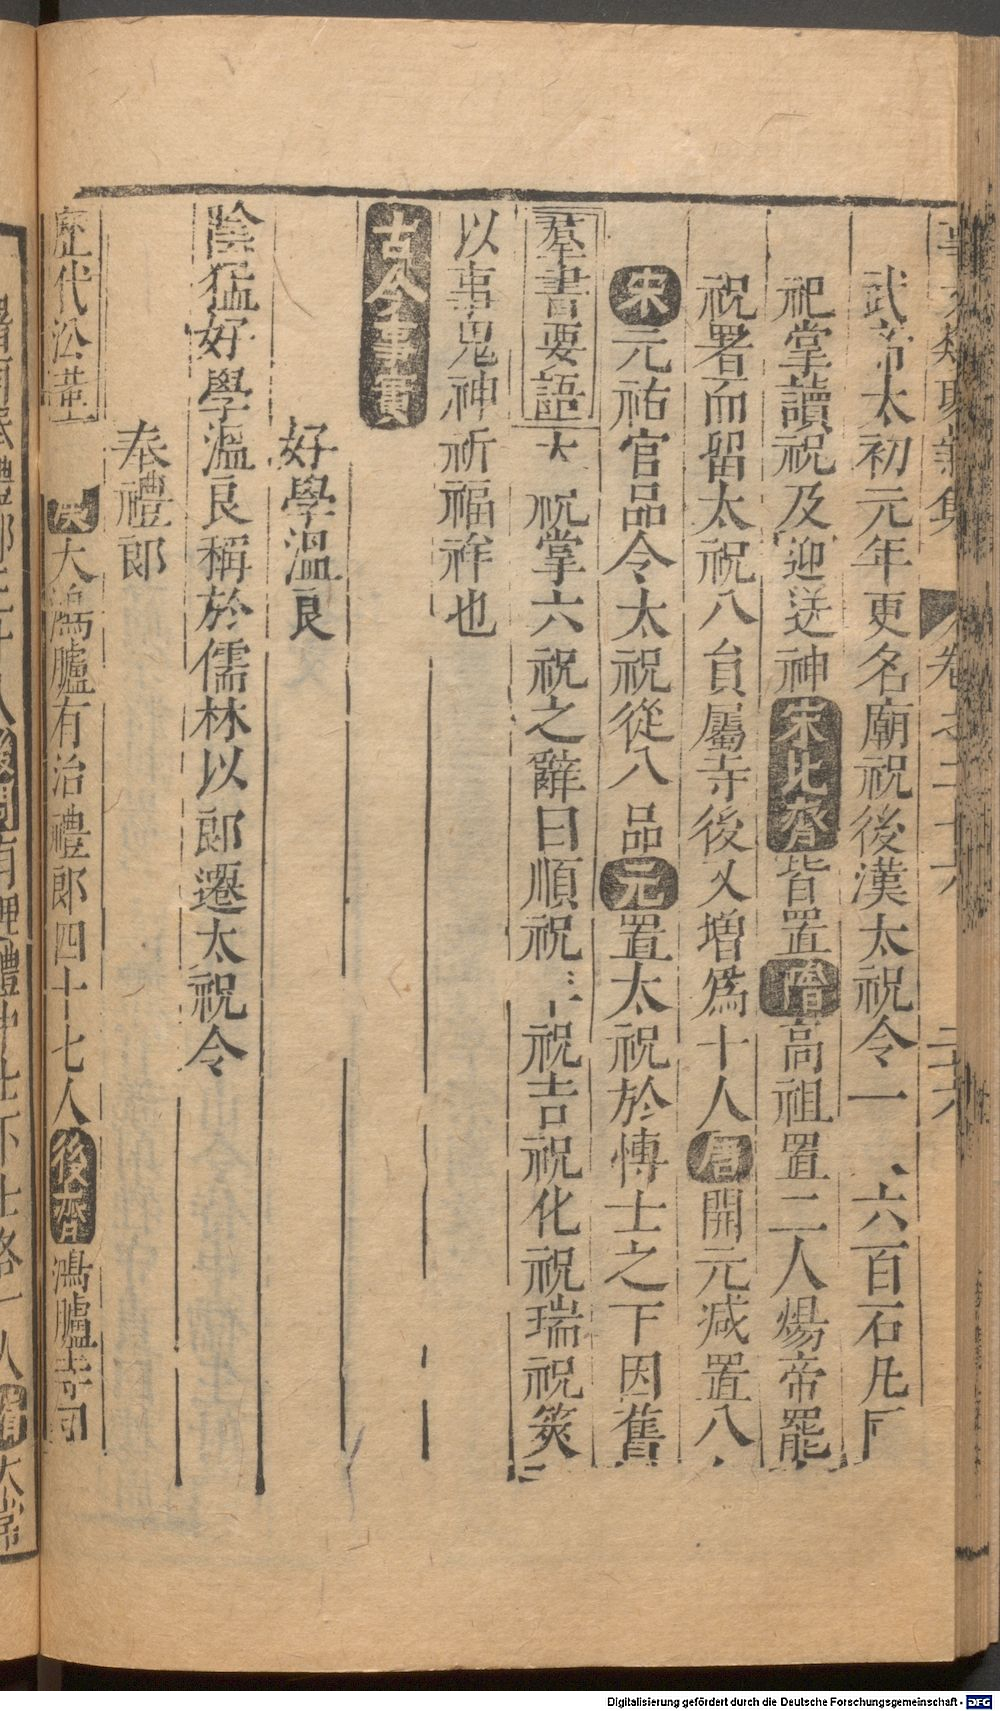 事文類聚新集 卷之二十六 二十六
武帝太初元年更名廟祝後漢太祝令一人六百石凡國
祀掌讀祝及迎送神宋北齊皆置隋高祖置二人煬帝罷
祝署而留太祝八員屬寺後又増爲十人唐開元减置八人
宋元祐官品令太祝從八品元置太祝於愽士之下因舊
羣書要語大祝掌六祝之辭曰順祝年祝吉祝化祝瑞祝筴祝
以事鬼神祈福祥也
古今事實
好學溫良
陰猛好學溫良稱於儒林以郎遷太祝令
奉禮郎
歷代沿革 漢大鴻臚有治禮郎四十七人後齊鴻臚寺司